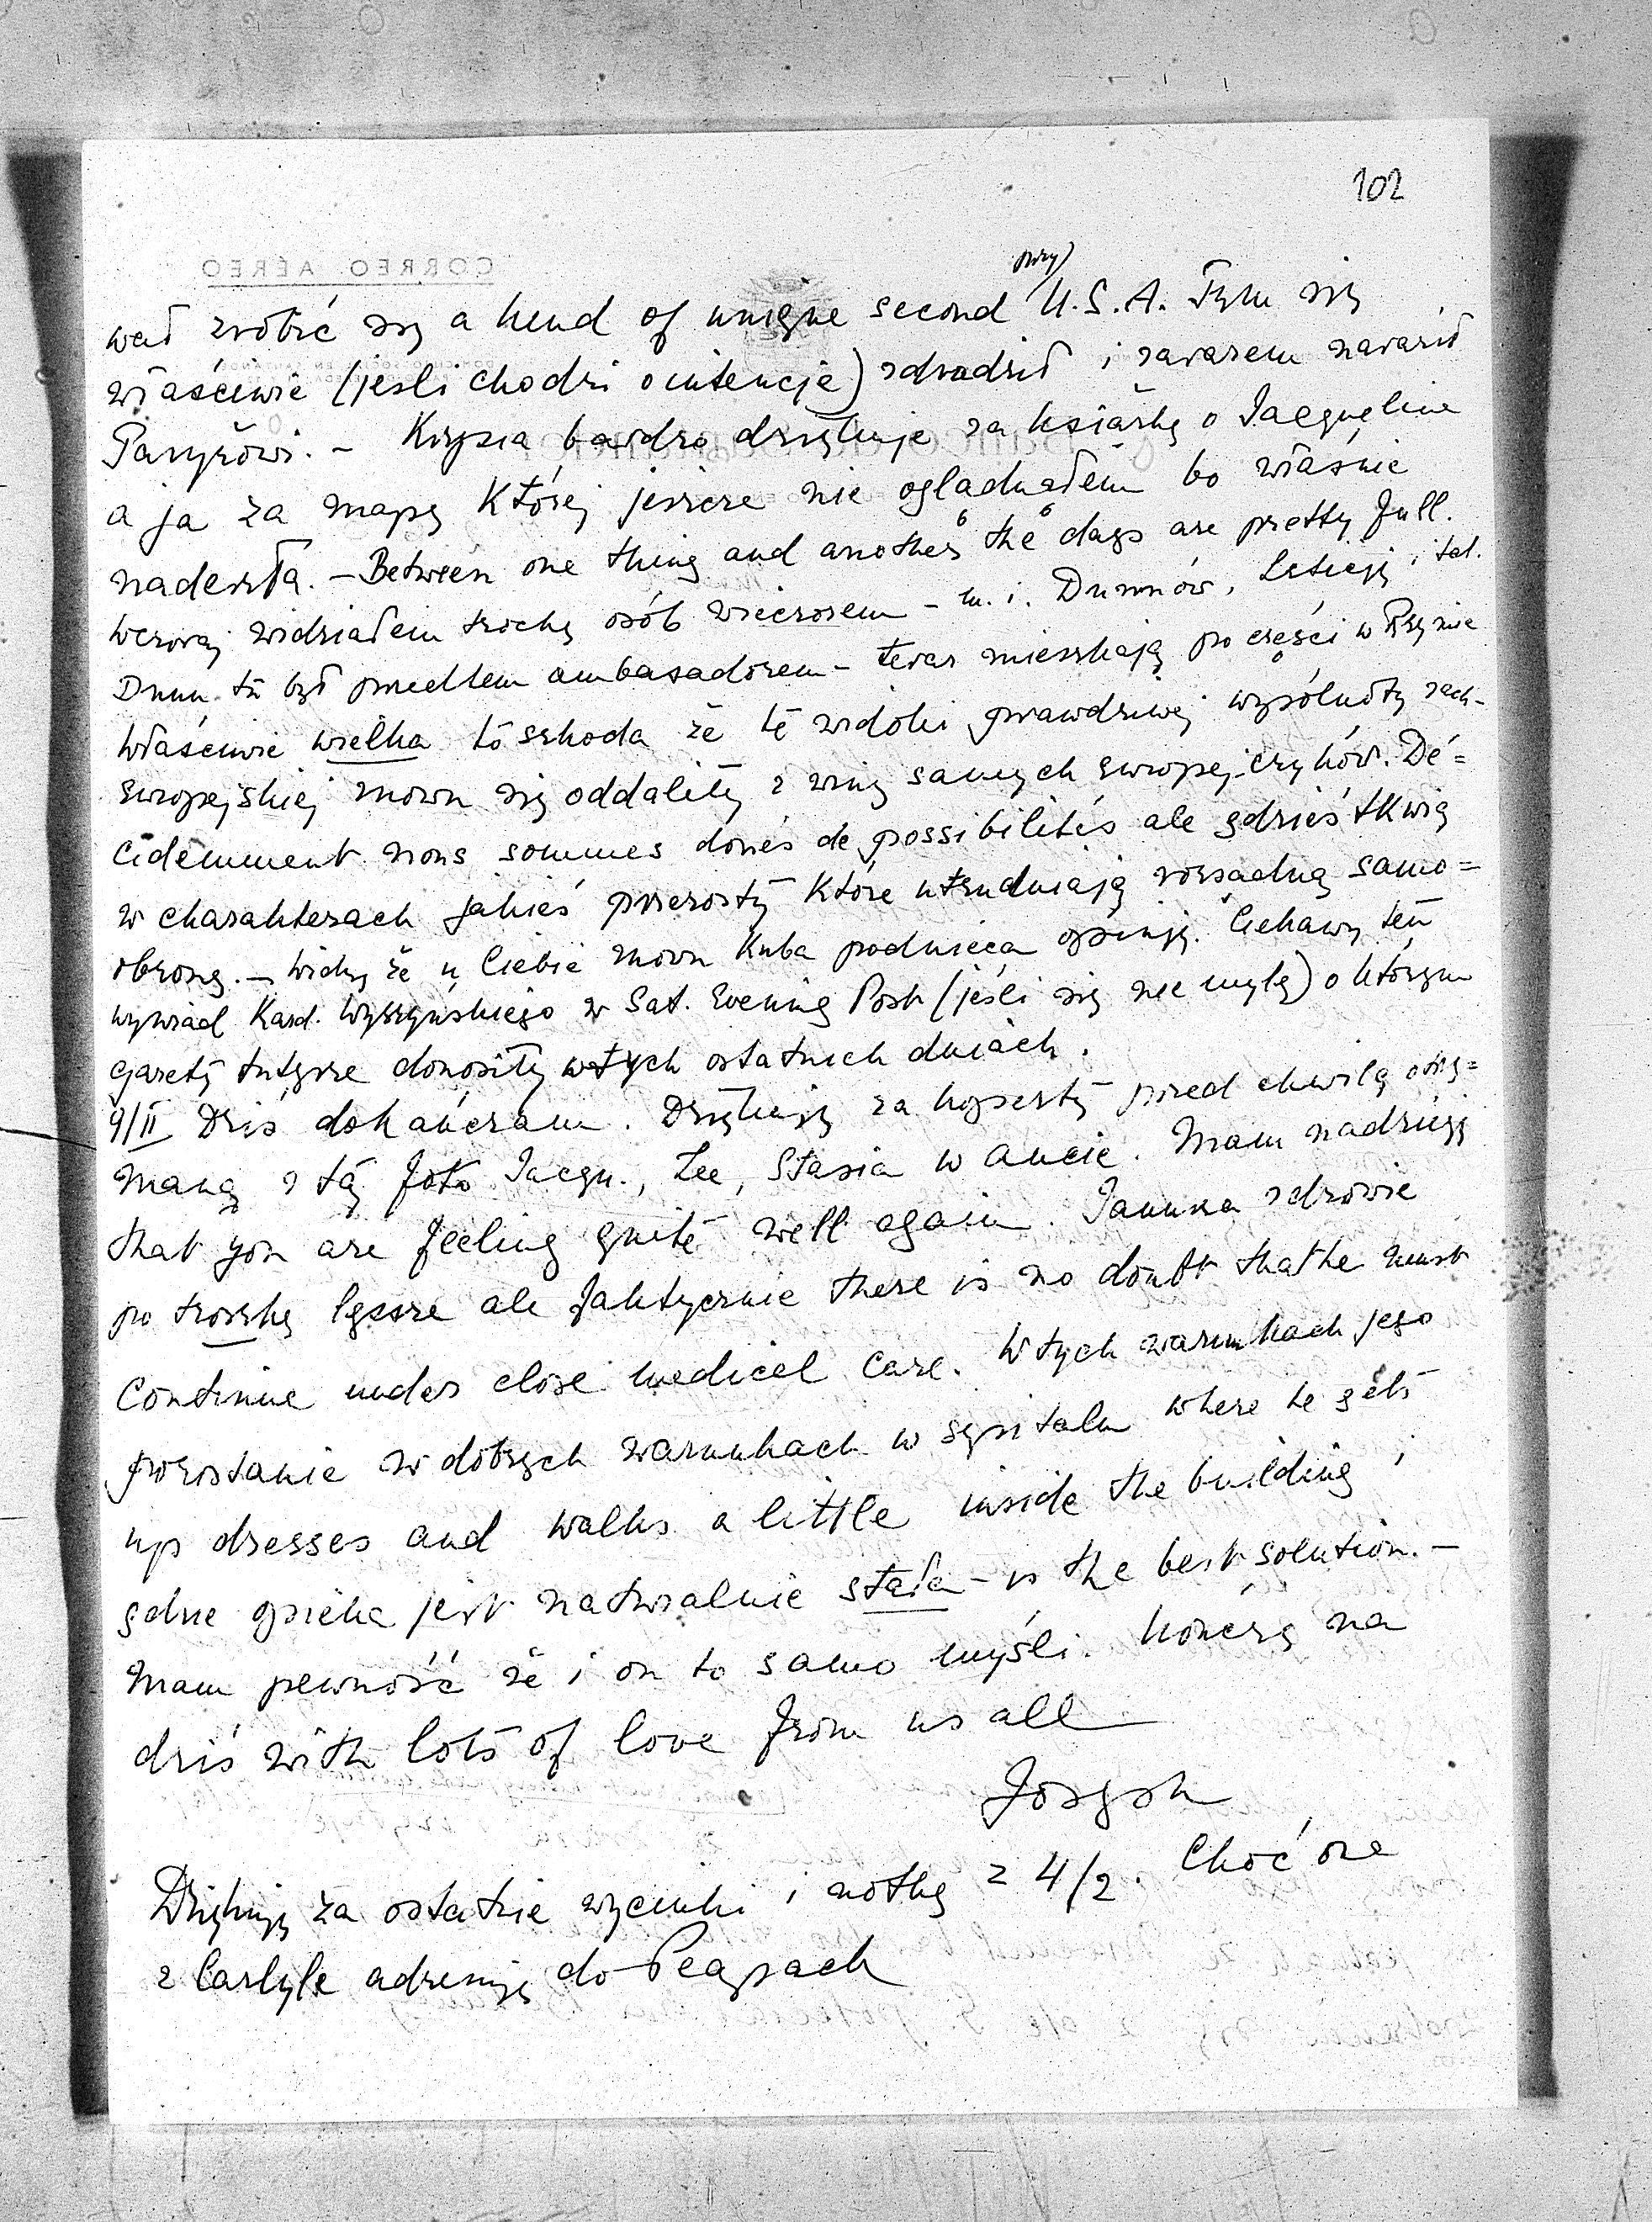 102
CORREO AÉREO
przy
wał zrobić się a kind of unique second U.S.A. Tym się
właściwie (jeśli chodzi o intencje) zdradził i zarazem naraził
Paryżowi. – Krysia bardzo dziękuje za książkę o Jacqueline
a ja za mapę której jeszcze nie oglądnąłem bo właśnie
nadeszła. – Between one thing and another the days are pretty full.
Wczoraj widziałem trochę osób wieczorem – m. i. Dunnów, Leticję i td.
Dunn tu był przedtem ambasadorem – teraz mieszkają po części w Rzymie
Właściwie wielka to szkoda że te widoki prawdziwej wspólnoty zach-
europejskiej znowu się oddaliły z winy samych europejczyków. Dé=
cidemment nous sommes donés de possibilités ale gdzieś tkwią
w charakterach jakieś przerosty które utrudniają rozsądną samo=
obronę. – Widzę że u Ciebie znowu Kuba podnieca opinję. Ciekawy ten
wywiad Kard. Wyszyńskiego w Sat. Evening Post (jeśli się nie mylę) o którym
gazety tutejsze donosiły w tych ostatnich dniach.
9/II Dziś dokańczam. Dziękuję za kopertę przed chwilą otrzy=
maną z tą foto Jacqu., Lee, Stasia w aucie. Mam nadzieję
that you are feeling quite well again. Janusza zdrowie
po troszkę lepsze ale faktycznie there is no doubt that he must
continue under close medical care. W tych warunkach jego
pozostanie w dobrych warunkach w szpitalu where he gets
up dresses and walks a little inside the building i
gdzie opieka jest naturalnie stała – is the best solution. –
Mam pewność że i on to samo myśli. Kończę na
dziś with lots of love from us all
Joseph
Dziękuję za ostatnie wycinki i notkę z 4/2. Choć one
z Carlyle adresuję do Peapack